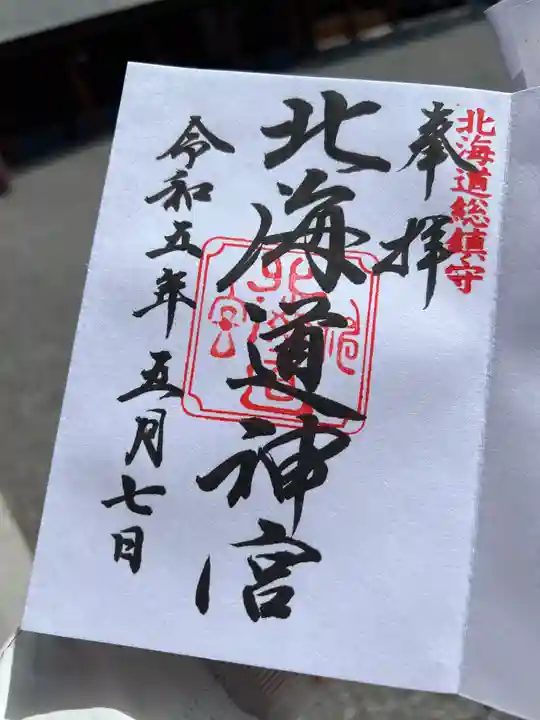 北海道総鎮守
奉拝
北海道神宮
令和五年五月七日